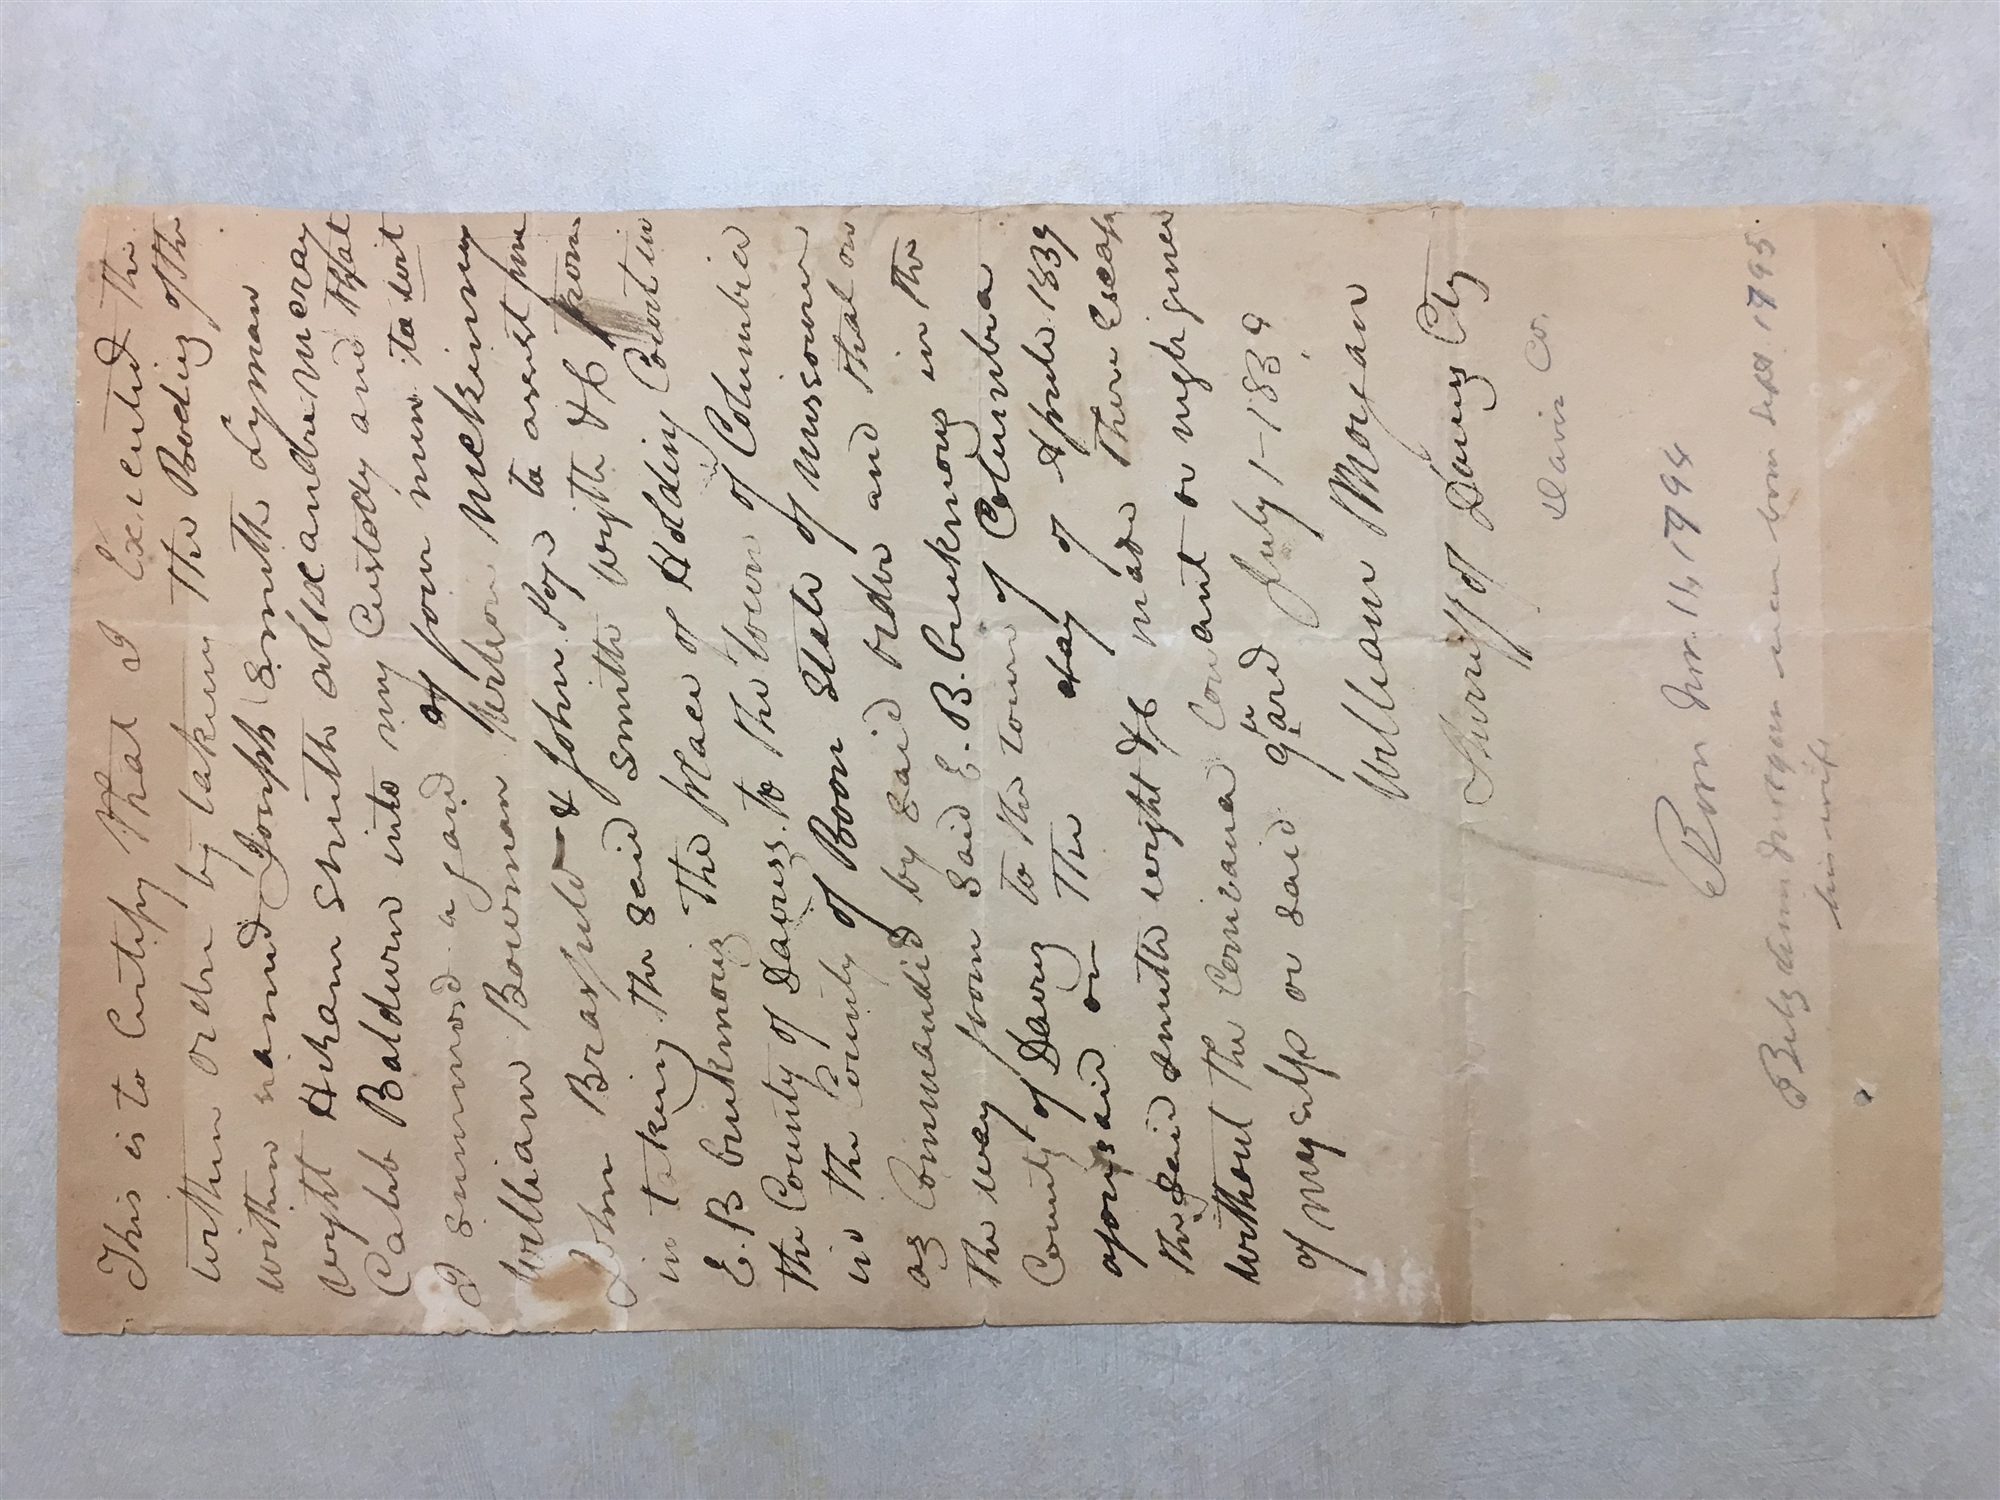 This is to Certify that I Executed the
within order by takeing the Bodiey of the
within named Joseph Smith Lyman
wight Hiram Smith allexandria Mcray
Caleb Baldwin into my Custody and that
I summosd a gard of four men to wit
William Bowman Wilson Mckinney
John Brasfield & John Pogue to assist me
in takeing the said Smith wight &c from
E. B buknoug the place of Holding Court in
the County of Daviess to the town of Columbia
in the County of Boon State of missouri
as Commanded by said order and that on
the way from said E. B. buknoug in the
County of Daviss to the town of Columbia
aforesaid on the day of Aprile 1839
the said Smith wight &c made there Escape
without the Conivance Consent or neghgance
of my self or said gard July 1 - 1839
William Morgan
Sherriff of Daviss Cty
Daviss Co.
Born Nov. 16, 1794
Betzy Ann Morgan born Sept 1795
his wife